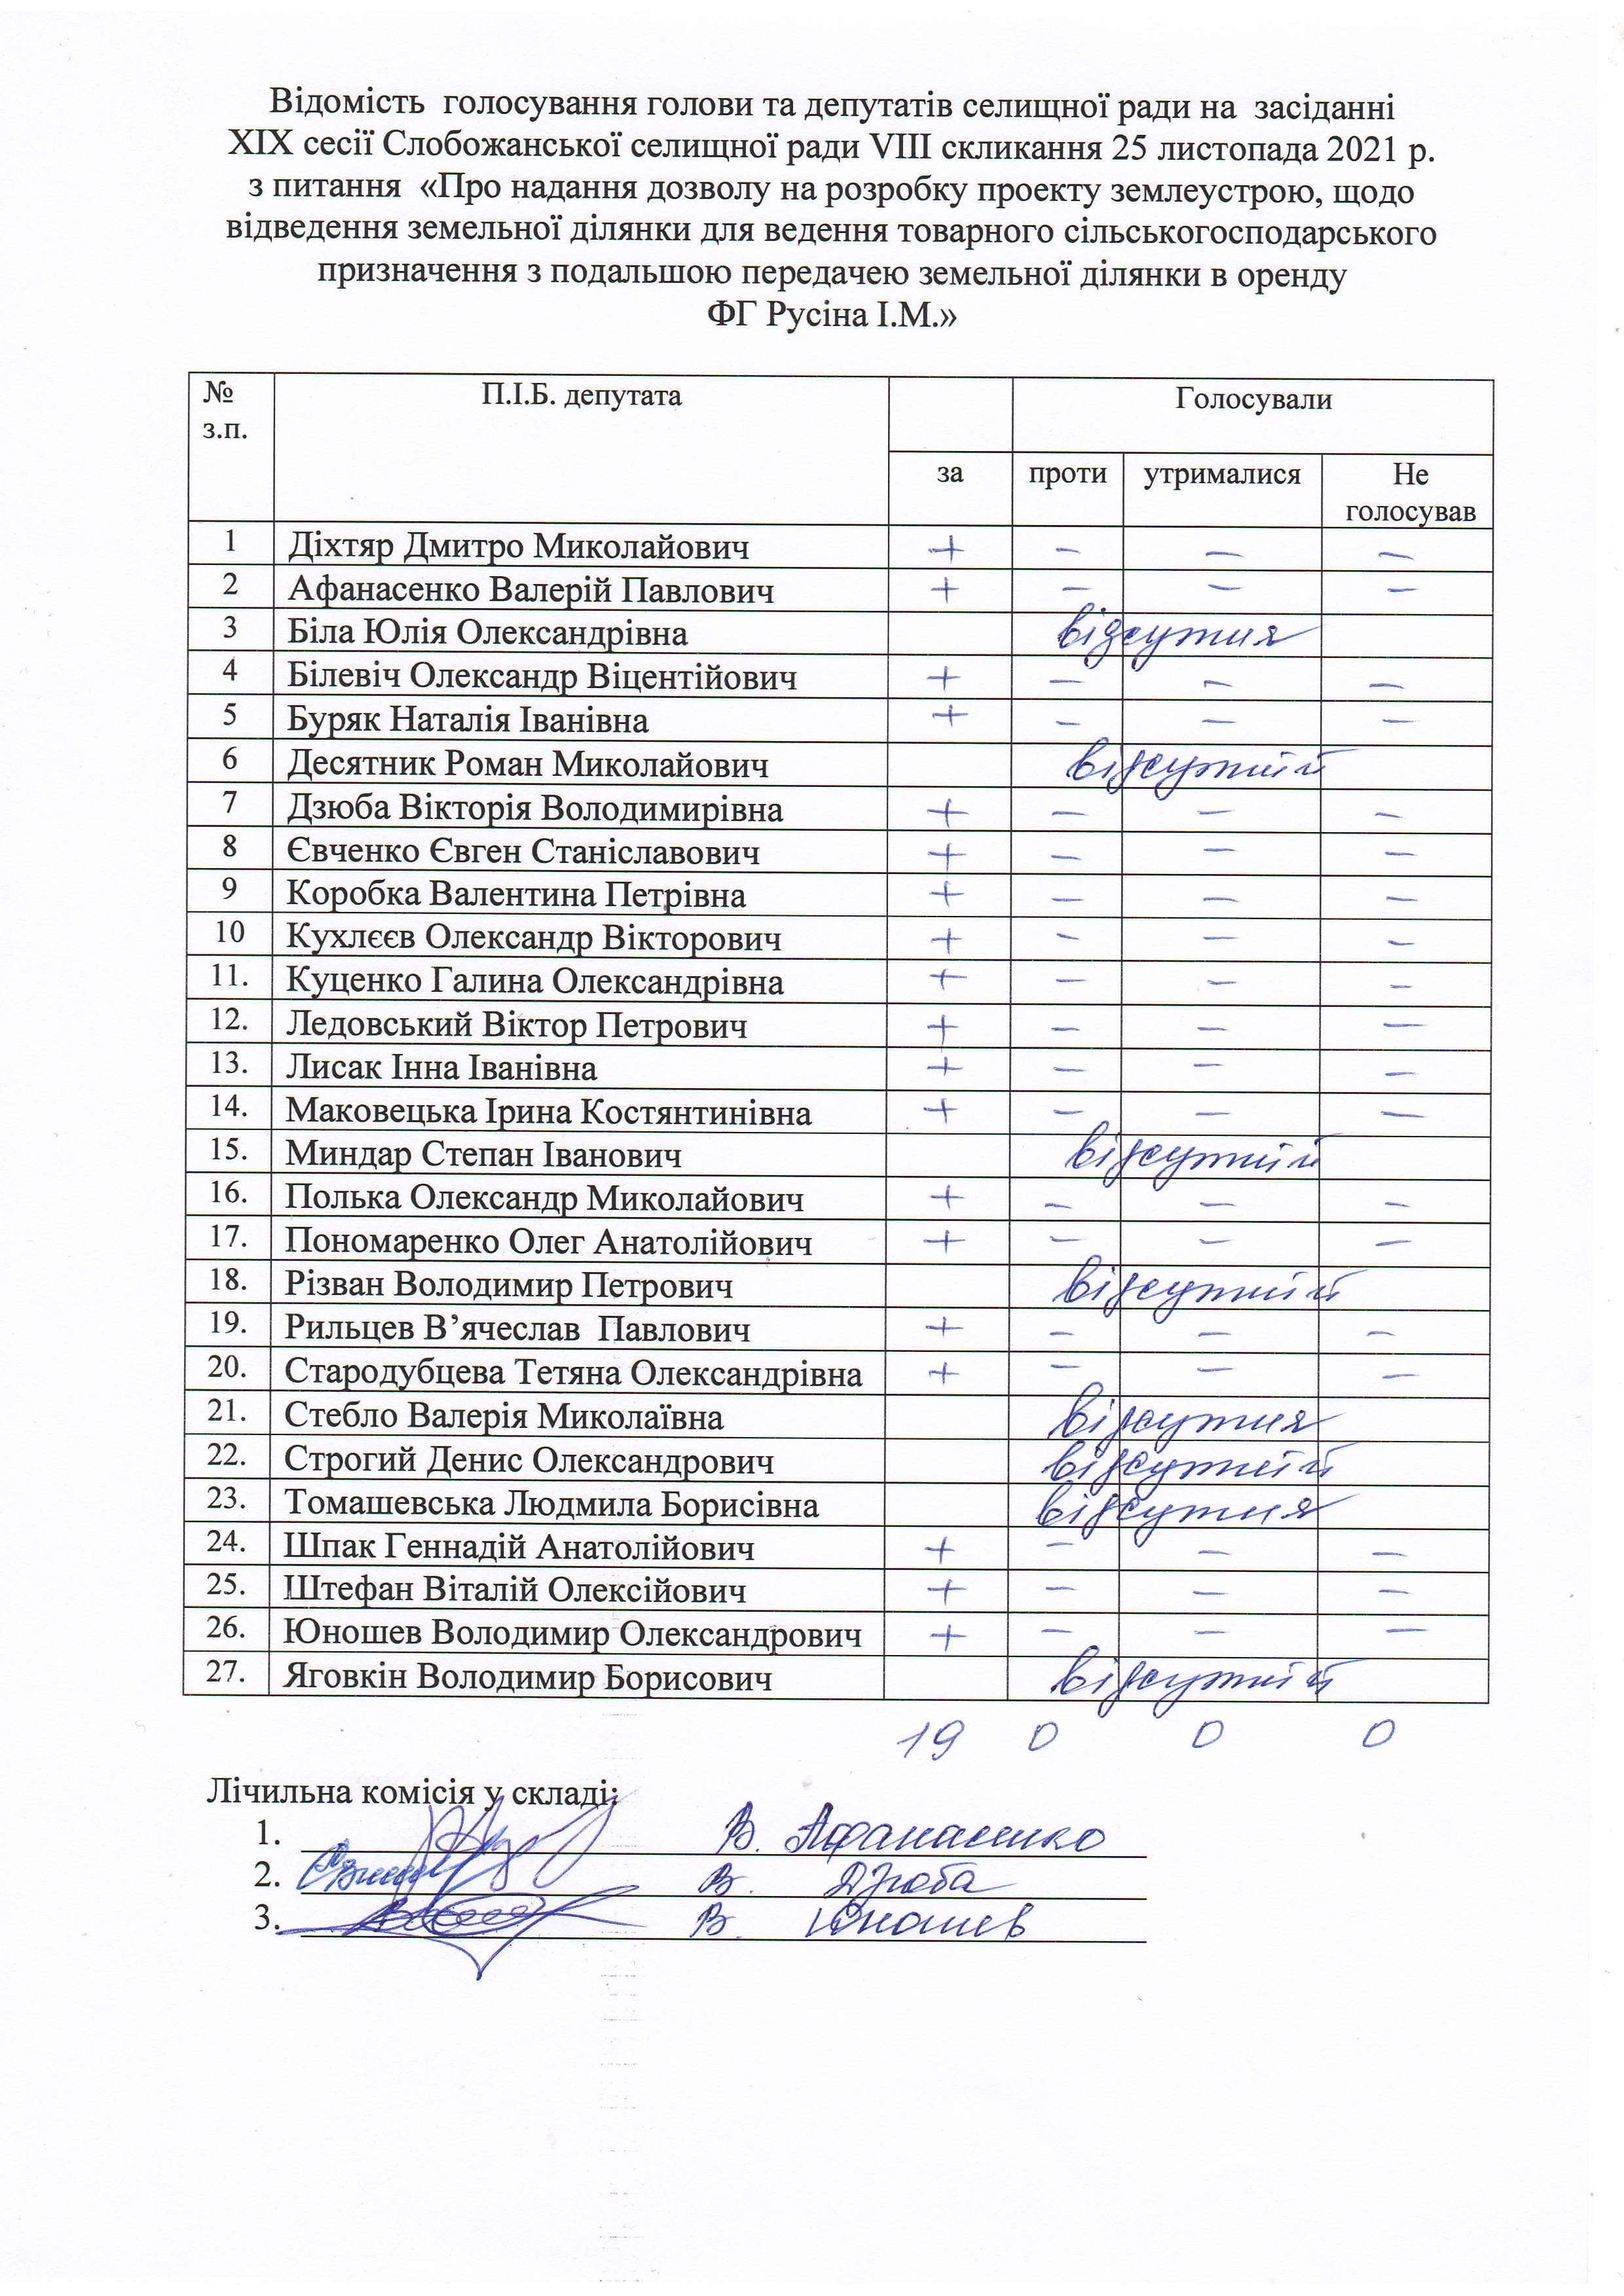 Відомість голосування голови та депутатів селищної ради на засіданні
XIX сесії Слобожанської селищної ради VIII скликання 25 листопада 2021 р.
з питання «Про надання дозволу на розробку проекту землеустрою, щодо
відведення земельної ділянки для ведення товарного сільськогосподарського
призначення з подальшою передачею земельної ділянки в оренду
ФГ Русіна І.М.»
№ з.п. П.І.Б. депутата Голосували
за проти утрималися Не голосував
1 Діхтяр Дмитро Миколайович + – – –
2 Афанасенко Валерій Павлович + – – –
3 Біла Юлія Олександрівна відсутня
4 Білевіч Олександр Віцентійович + – – –
5 Буряк Наталія Іванівна + – – –
6 Десятник Роман Миколайович відсутній
7 Дзюба Вікторія Володимирівна + – – –
8 Євченко Євген Станіславович + – – –
9 Коробка Валентина Петрівна + – – –
10 Кухлєєв Олександр Вікторович + – – –
11. Куценко Галина Олександрівна + – – –
12. Ледовський Віктор Петрович + – – –
13. Лисак Інна Іванівна + – – –
14. Маковецька Ірина Костянтинівна + – – –
15. Миндар Степан Іванович відсутній
16. Полька Олександр Миколайович + – – –
17. Пономаренко Олег Анатолійович + – – –
18. Різван Володимир Петрович відсутній
19. Рильцев В’ячеслав Павлович + – – –
20. Стародубцева Тетяна Олександрівна + – – –
21. Стебло Валерія Миколаївна відсутня
22. Строгий Денис Олександрович відсутній
23. Томашевська Людмила Борисівна відсутня
24. Шпак Геннадій Анатолійович + – – –
25. Штефан Віталій Олексійович + – – –
26. Юношев Володимир Олександрович + – – –
27. Яговкін Володимир Борисович відсутній
19 0 0 0
Лічильна комісія у складі:
1. В. Афанасенко
2. В. Дзюба
3. В. Юношев